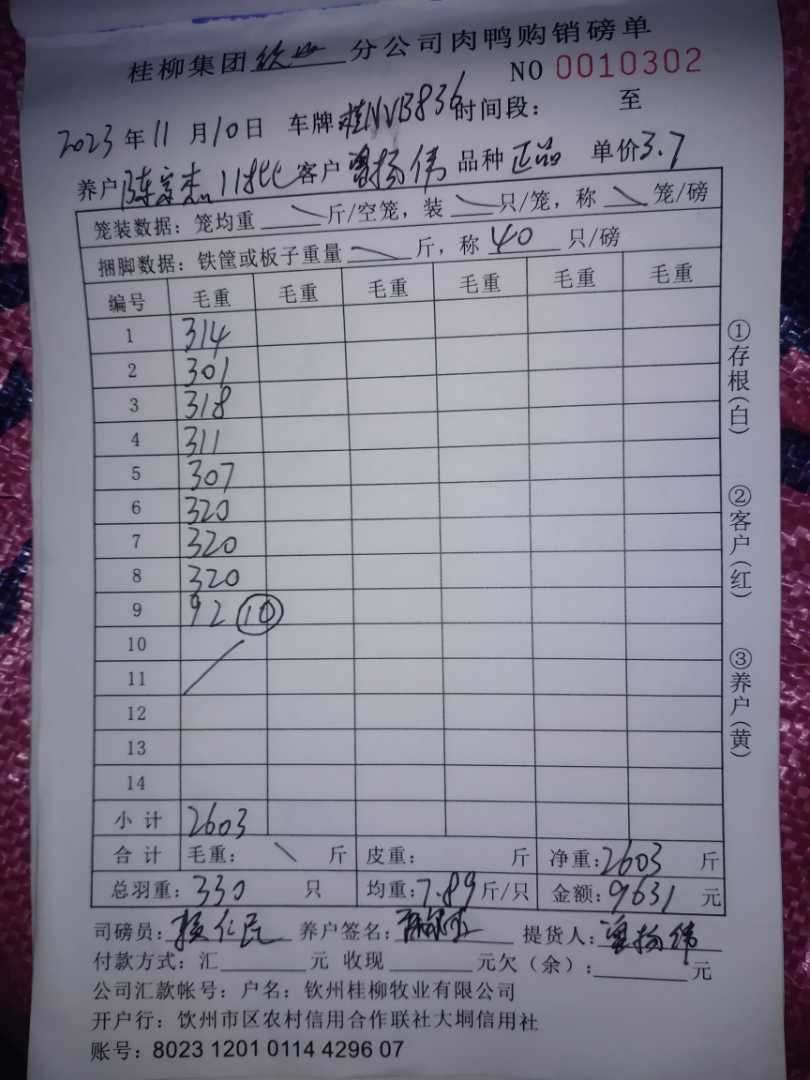 桂柳集团钦州分公司肉鸭购销磅单
NO 0010302
2023年11月10日 车牌桂NVB836时间段： 至
养户陈家杰11批客户曾扬伟品种正品 单价3.7
笼装数据：笼均重＼斤/空笼，装＼只/笼，称＼笼/磅
捆脚数据：铁筐或板子重量＼斤，称40只/磅
编号 毛重 毛重 毛重 毛重 毛重 毛重
1 314
2 301
3 318
4 311
5 307
6 320
7 320
8 320
9 92 ⑩
10
11
12
13
14
小计 2603
合计 毛重：＼斤 皮重： 斤 净重：2603斤
总羽重：330只 均重：7.89斤/只 金额：9631元
司磅员：赖仁民 养户签名： 提货人：曾扬伟
付款方式：汇 元 收现 元欠（余）： 元
公司汇款帐号：户名：钦州桂柳牧业有限公司
开户行：饮州市区农村信用合作联社大垌信用社
账号：8023 1201 0114 4296 07
①存根（白） ②客户（红） ③养户（黄）